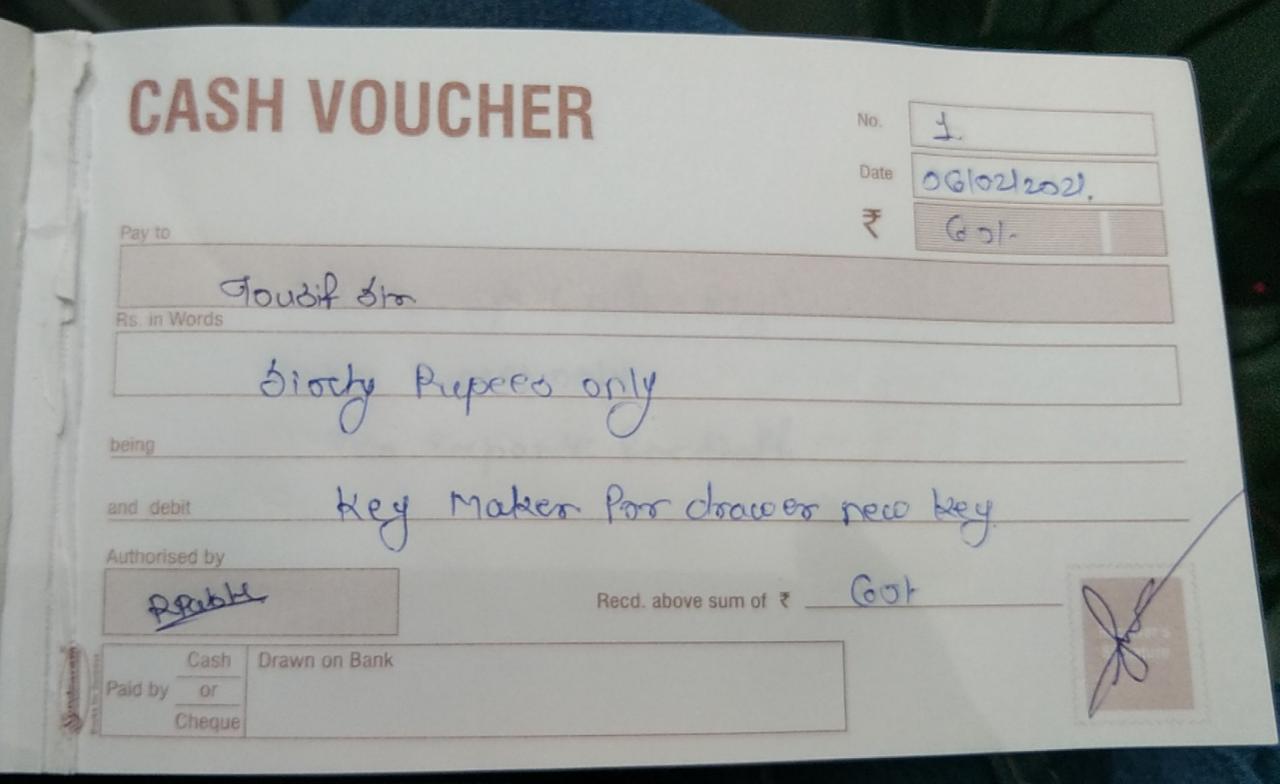 CASH VOUCHER
No. 1.
Date 06/02/2021.
₹ 60/-
Pay to
Tousif Sir
Rs. in Words
Sixty Rupees only
being
and debit Key Maker For drawer new key
Authorised by
Recd. above sum of ₹ 60/-
Paid by Cash or Cheque
Drawn on Bank